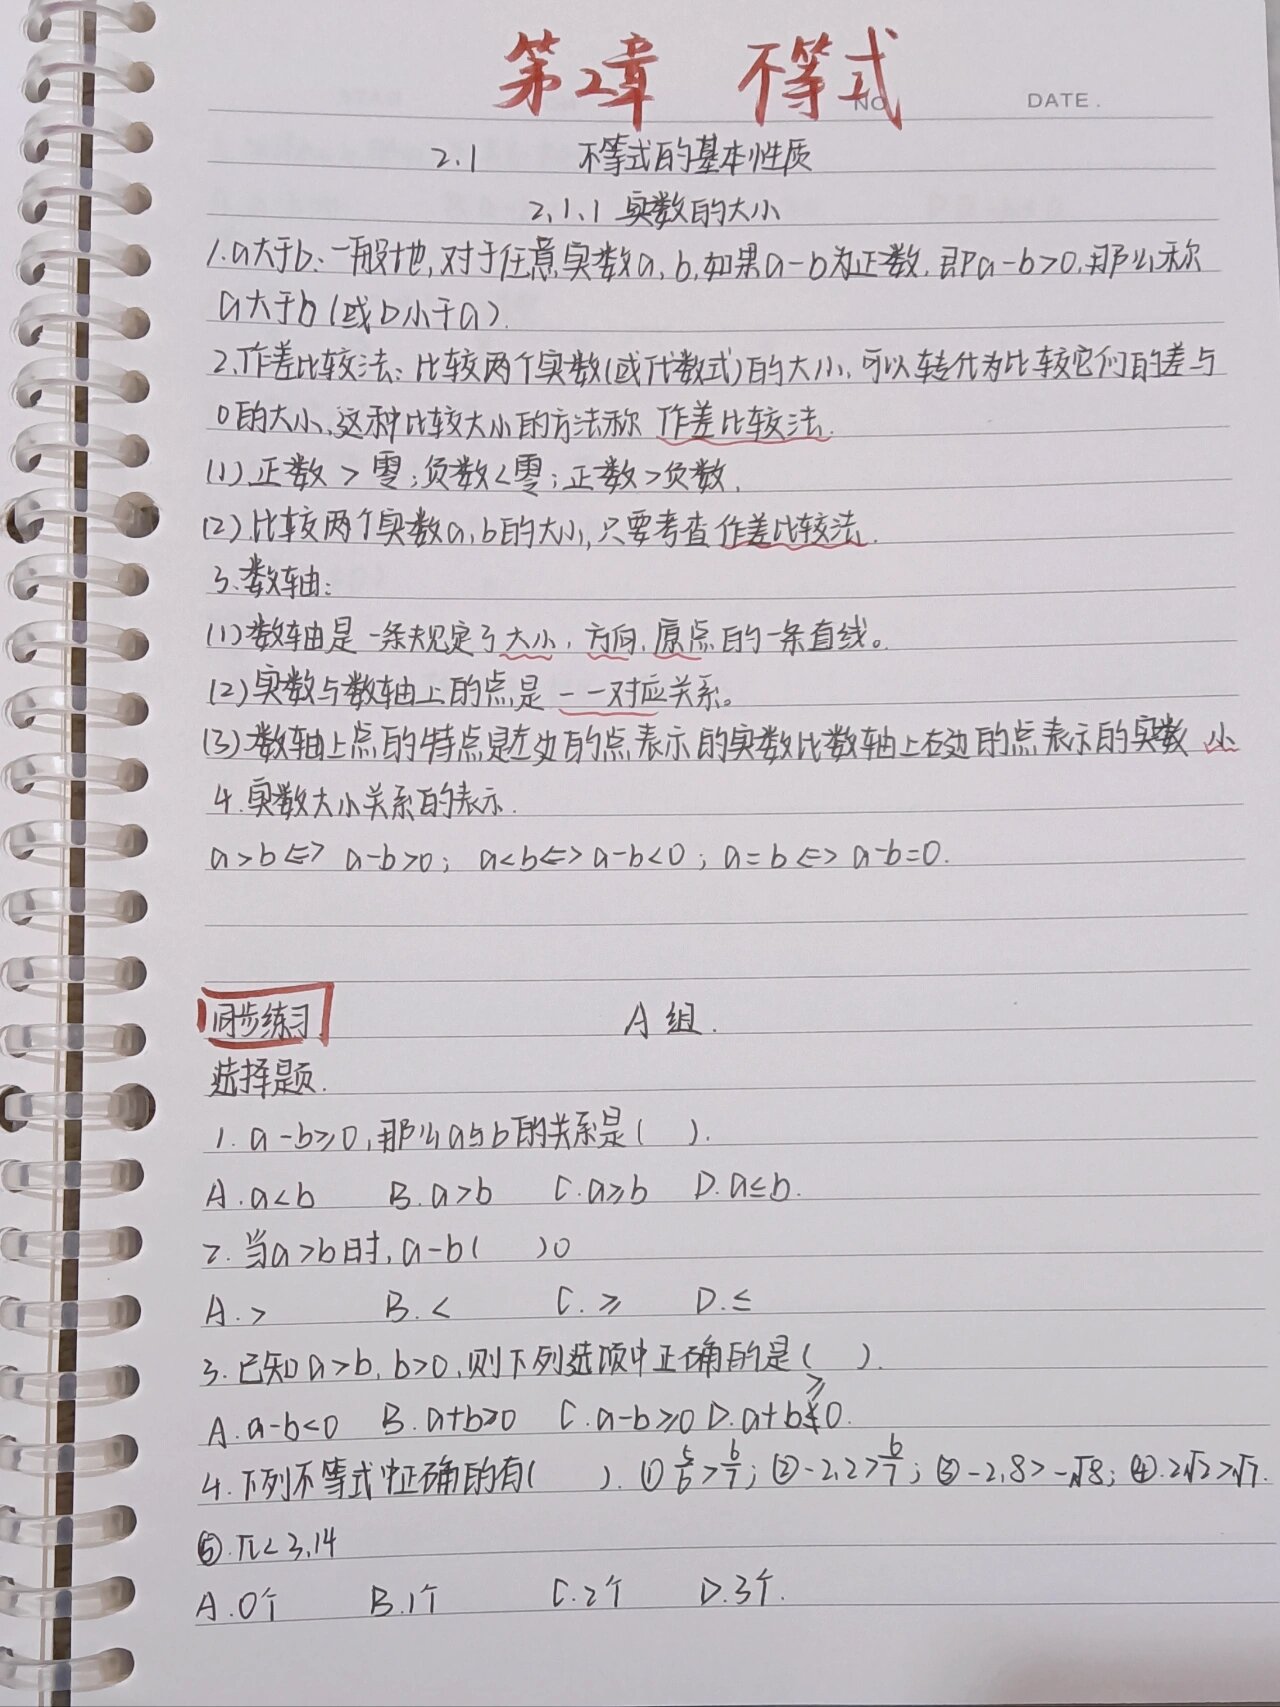 第2章 不等式
NO
DATE.
2.1 不等式的基本性质
2.1.1 实数的大小
1.a大于b:一般地,对于任意实数a,b,如果a-b为正数,即a-b>0,那么称
a大于b(或b小于a).
2.作差比较法:比较两个实数(或代数式)的大小,可以转化为比较它们的差与
0的大小,这种比较大小的方法称 作差比较法.
(1)正数>零;负数<零;正数>负数.
(2).比较两个实数a,b的大小,只要考查作差比较法.
3.数轴:
(1)数轴是一条规定了大小,方向,原点的一条直线。
(2)实数与数轴上的点是一一对应关系。
(3)数轴上点的特点是左边的点表示的实数比数轴上右边的点表示的实数 小
4.实数大小关系的表示.
a>b⇔a-b>0; a<b⇔a-b<0; a=b⇔a-b=0.
同步练习 A组.
选择题.
1. a-b≥0,那么a与b的关系是( ).
A.a<b B.a>b C.a≥b D.a≤b.
2.当a>b时,a-b( )0
A.> B.< C.≥ D.≤
3.已知a>b,b>0,则下列选项中正确的是( ).
A.a-b<0 B.a+b>0 C.a-b≥0 D.a+b≥0.
4.下列不等式中正确的有( ). ①5/6>6/7; ②-2.2>6/7; ③-2.8>-√8; ④.2√2>√7.
⑤.π<3.14
A.0个 B.1个 C.2个 D.3个.